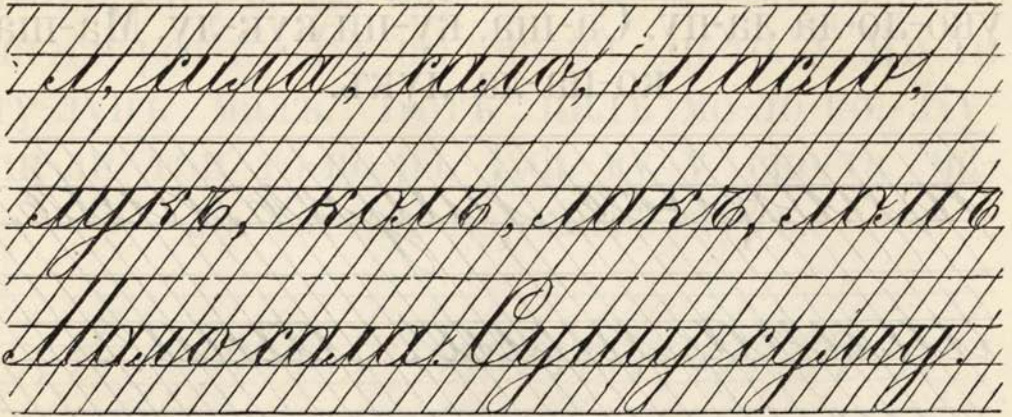 л, сила, сало, масло,
лукъ, колъ, лакъ, ломъ
Мало сала. Сушу суму.